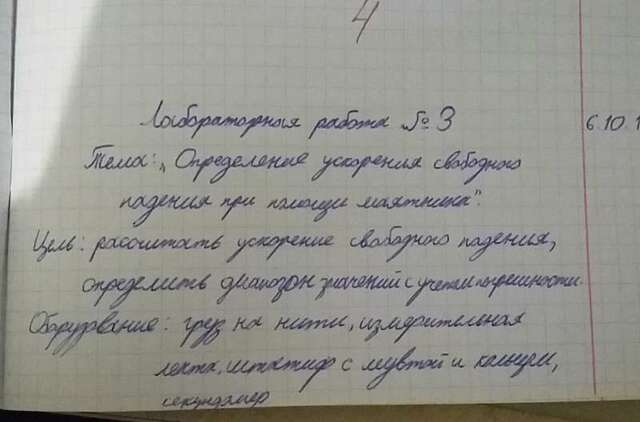 4
Лабораторная работа № 3
6.10.1
Тема: „Определение ускорения свободного
падения при помощи маятника".
Цель: рассчитать ускорение свободного падения,
определить диапозон значений с учетом погрешности.
Оборудование: груз на нити, измерительная
лента, штатиф с муфтой и кольцом,
секундомер